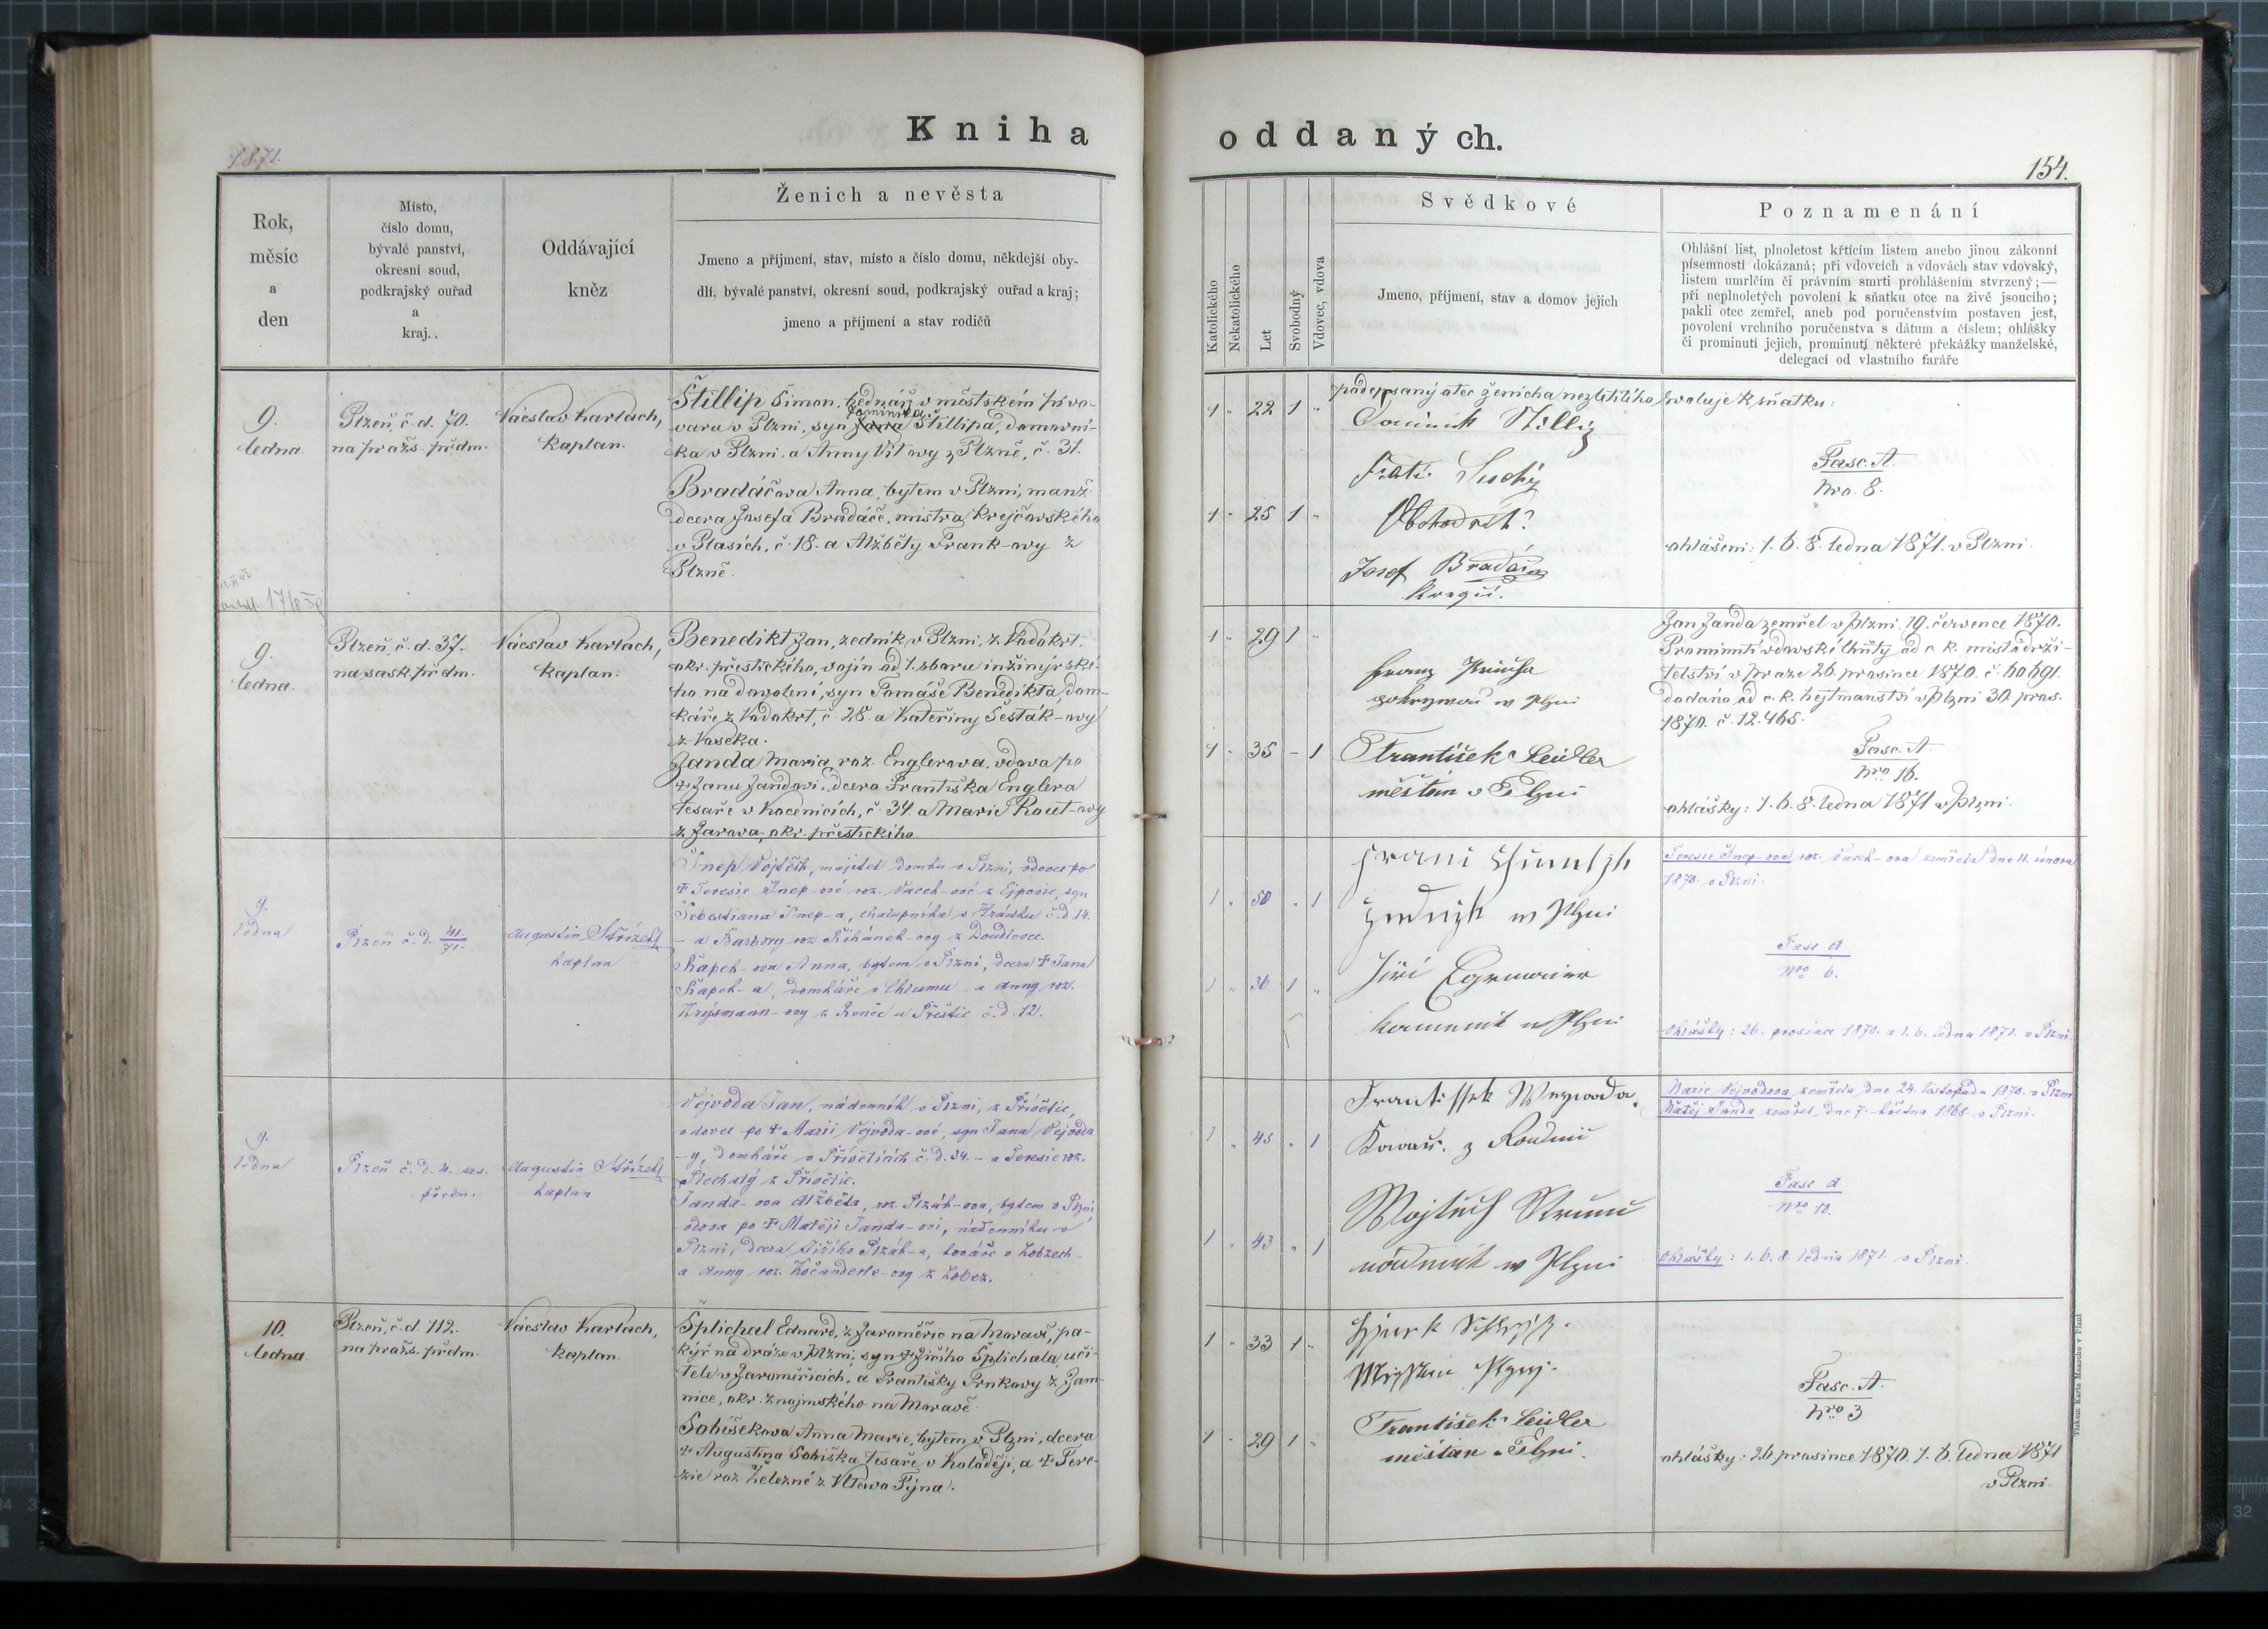 Kniha oddaných.
1871.
154.
Rok,
měsíc
a
den
Místo,
číslo domu,
bývalé panství,
okresní soud,
podkrajský ouřad
a
kraj..
Oddávající
kněz
Ženich a nevěsta
Jmeno a příjmení, stav, místo a číslo domu, někdejší oby-
dlí, bývalé panství, okresní soud, podkrajský ouřad a kraj;
jmeno a příjmení a stav rodičů
Katolického
Nekatolického
Let
Svobodný
Vdovec, vdova
Svědkové
Jmeno, příjmení, stav a domov jejich
Poznamenání
Ohlášní list, plnoletost křticím listem anebo jinou zákonní
písemností dokázaná; při vdovcích a vdovách stav vdovský,
listem umrlčím či právním smrti prohlášením stvrzený;—
při neplnoletých povolení k sňatku otce na živě jsoucího;
pakli otec zemřel, aneb pod poručenstvím postaven jest,
povolení vrchního poručenstva s dátum a číslem; ohlášky
či prominutí jejich, prominutí některé překážky manželské,
delegací od vlastního faráře
9.
ledna.
Plzeň, č. d. 70.
na pražs. předm.
Vácslav Karlach,
kaplan.
Štillip Šimon, bednář v městském pivo-
varu v Plzni, syn Jana Dominika Štillipa, domovní-
ka v Plzni, a Anny Vítovy z Plzně, č. 31.
Bradáčova Anna, bytem v Plzni, manž.
dcera Josefa Bradáče, mistra krejčovského
v Plasích, č. 18. a Alžběty Frank-ovy z
Plzně.
1 " 22 1 "
1 " 25 1 "
podepsaný otec ženicha nezletilého svoluje k sňatku:
Dominik Stillip
Suchý
Josef Bradáč
Fasc. A.
Nro. 8.
ohlášeni: 1. 6. 8. ledna 1871. v Plzni.
9.
ledna.
Plzeň, č. d. 37.
na sask. předm.
Vácslav Karlach,
kaplan.
Benedikt Jan, zedník v Plzni, z Vodokrt.
okr. přestického, vojín od 1. sboru inžinýrské-
ho na dovolení, syn Tomáše Benedikta, dom-
káře z Vodokrt, č. 28. a Kateřiny Šesták-ovy
z Voseka.
Janda Maria, roz. Englerova, vdova po
† Janu Jandovi, dcera Františka Englera
tesaře v Kocenicích, č. 34. a Marie Rout-ovy
z Žarova, okr. přestického.
1 " 29 1 "
1 " 35 - 1
Franz
František Seidler
měštan v Plzni
Jan Janda zemřel v Plzni, 19. července 1870.
Prominutí vdovské lhůty od c. k. místodrži-
telství v Praze 26. prosince 1870. č.
dodáno od c. k. hejtmanství v Plzni 30. pros.
1870. č. 12.465.
Fasc. A
Nro 16.
ohlášky: 1. 6. 8. ledna 1871 v Plzni.
9.
ledna
Plzeň č. d. 41./71.
Augustin Střízek
kaplan
Šnep Vojtěch, majitel domku v Plzni, vdovec po
† Teresie Šnep-ové roz. Vacek-ové z Ejpovic, syn
Šebestiana Šnep-a, chalupníka v Hrádku č. d. 14.
- a Barbory roz. Řihánek-ovy z Doudlevec.
Kapek-ova Anna, bytem v Plzni, dcera † Jana
Kapek-a, domkáře v Chlumu - a Anny roz.
1 " 50 " 1
1 " 36 1 "
Jiří
Teresie Šnep-ova roz. Vacek-ova zemřela dne 11. února
1870. v Plzni.
Fasc A
Nro 6.
Ohlášky: 26. prosince 1870. a 1. 6. ledna 1871. v Plzni.
9.
ledna
Plzeň č. d. 4. sas.
předm.
Augustin Střízek
kaplan
Vejvoda Jan, nádenník v Plzni, z Přívětic,
vdovec po † Marii Vejvoda-ové, syn Jana Vejvoda
-y, domkáře v Příveticích č. d. 34. - a Teresie roz.
Plechatý z Přívětic.
Janda-ova Alžběta, roz. Plzák-ova, bytem v Plzni
vdova po † Matěji Janda-ovi, nádenníku v
Plzni, dcera Jiřího Plzák-a, kováře v Lobzech
a Anny roz. Kočanderle-ovy z Lobez.
1 " 45 " 1
1 " 43 " 1
Frantissek Weywoda
Kowař.
Marie Vejvodova zemřela dne 24. listopadu 1870. v Plzni
Matěj Janda zemřel dne 7. května 1868. v Plzni.
Fasc A
Nro 10.
Ohlášky: 1. 6. 8. ledna 1871. v Plzni.
10.
ledna
Plzeň, č. d. 112.
na pražs. předm.
Vácslav Karlach,
kaplan
Šplichal Eduard, z Jaroměřic na Moravě, pa-
kýř na dráze v Plzni, syn † Jiřího Šplichala, uči-
tele v Jaroměřicích, a Františky Prnkovy z Jam-
nice, okr. znojmského na Moravě
Sobíšekova Anna Marie, bytem v Plzni, dcera
† Augustina Sobíška, tesaře v Koloději, a † Tere-
zie roz. Železné z Vltavo Týna.
1 " 33 1 "
1 " 29 1 "
František Seidler
měštan v Plzni.
Fasc. A.
Nro 3
ohlášky: 26 prosince 1870. 1. 6. ledna 1871
v Plzni.
Tiskem Karla Maasche v Plzni